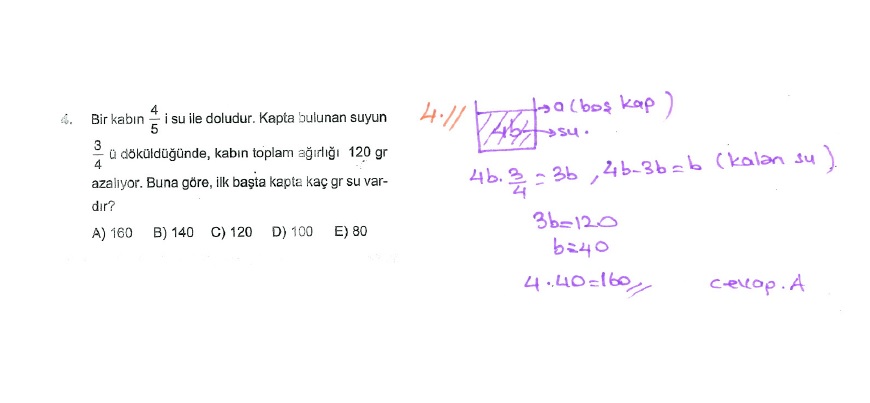 4. Bir kabın 4/5 i su ile doludur. Kapta bulunan suyun
3/4 ü döküldüğünde, kabın toplam ağırlığı 120 gr
azalıyor. Buna göre, ilk başta kapta kaç gr su var-
dır?
A) 160 B) 140 C) 120 D) 100 E) 80
4.//
a (boş kap)
4b su.
4b. 3/4 = 3b , 4b-3b=b (kalan su)
3b=120
b=40
4.40=160//
cevap. A